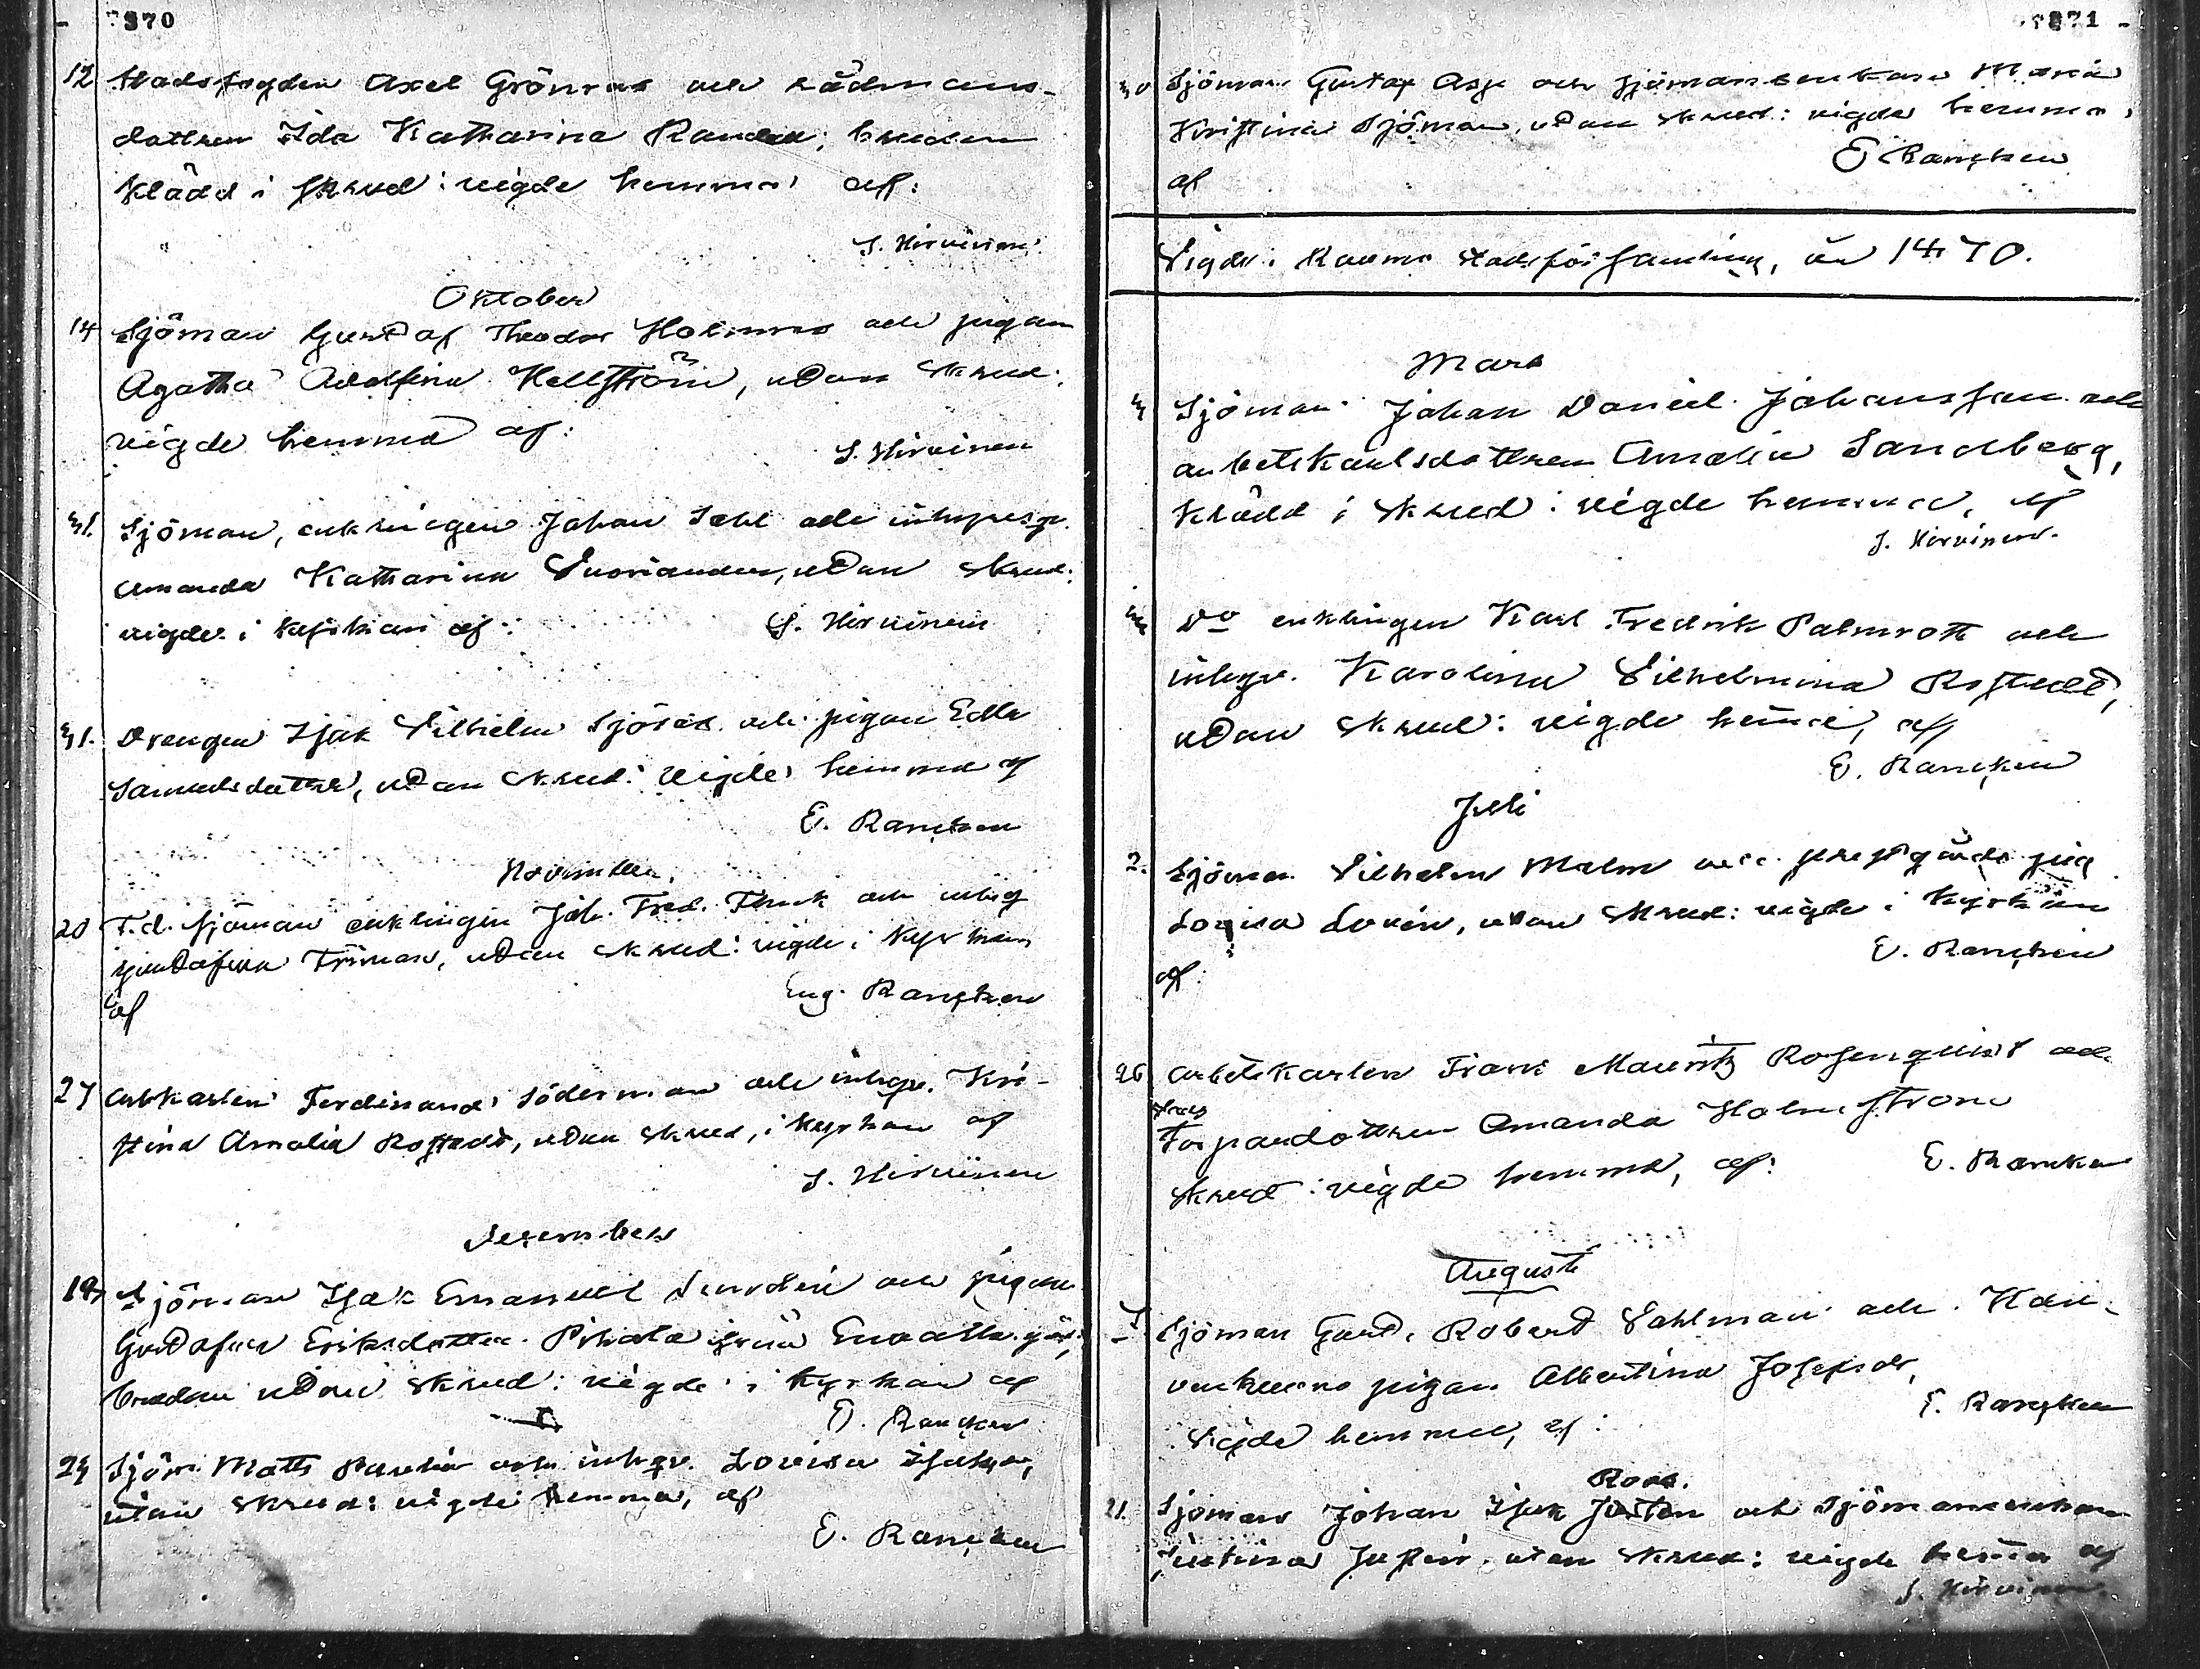 370
12 Stadsfogden Axel Grönroos och rådmans-
dottren Ida Katharina Randen; bruden
klädd i skrud: vigde hemma af:
S. Hirvinen
Oktober
14 Sjöman Gustaf Theodor Holmroos och pigan
Agatha Adolfina Hellström, utan skrud;
vigde hemma af:
S. Hirvinen
31. Sjöman, enklingen Johan Sahl och inhyses p.
Amanda Katharina, utan skrud:
vigde i kyrkan af:
S. Hirvinen
31. Drengen Isak Vilhelm och pigan Edla
Samuelsdotter, utan skrud: vigde hemma af
E. Rancken
November.
20 F.d. sjöman enklingen Joh. Fred. och inhys
Gustafva, utan skrud: vigde i kyrkan
af
Eug. Rancken
27 Arbkarlen Ferdinand Söderman och inhys. Kri-
stina Amalia Rostedt, utan skrud, i kyrkan af
S. Hirvinen
December
19 Sjöman Isak Emanuel och pigan
Gustafva Eriksdotter Pihala ifrån
bruden utan skrud: vigde i kyrkan af
E. Rancken
24 Sjöm. Matts och inhys. Lovisa
utan skrud: vigde hemma, af
E. Rancken
371
30 Sjöman Gustaf Asp och sjömansenkan Maria
Kristina Sjöman, utan skrud: vigde hemma
af
E Rancken
Vigde i Raumo stadsförsamling, år 1870.
Mars
3 Sjöman Johan Daniel Johansson och
arbetskarlsdottren Amalia Sandberg,
klädd i skrud: vigde hemma, af
S. Hirvinen.
Do enklingen Karl Fredrik Palmroth och
inhys. Karolina Vilhelmina Rostedt,
utan skrud: vigde hemma, af
E. Rancken
Juli
2. Sjöman Vilhelm Malm och prestgårds pig
Lovisa Lovén, utan skrud: vigde i kyrkan
af:
E. Rancken
26 Arbetskarlen Frans Mauritz Rosenquist och
Torpardottren Amanda Holmström
skrud: vigde hemma, af:
E. Rancken
Augusti
7 Sjöman Gust. Robert Vahlman och
pigan Albertina Josefsdr,
Vigde hemma, af:
E. Rancken
Roos.
21. Sjöman Johan Isak Justen och Sjömansenkan
Justina Justén utan skrud: vigde hemma af
S. Hirvinen